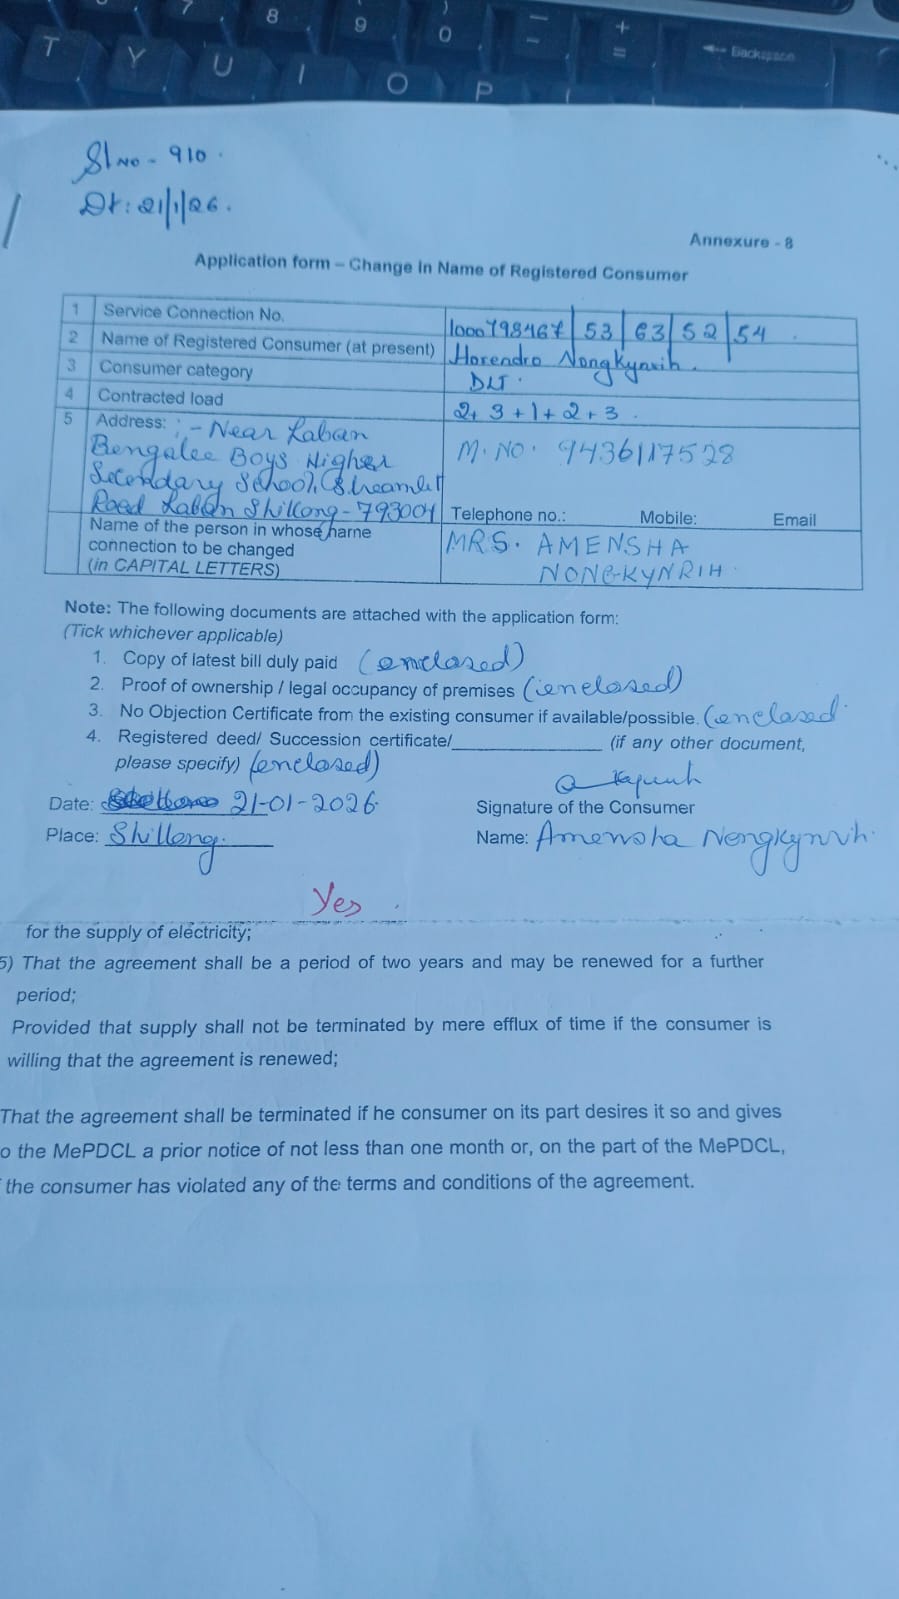 7 8 9 0 - + =
T Y U I O P Backspace
Sl No - 910.
Dt: 21/1/26.
Annexure - 8
Application form – Change in Name of Registered Consumer
1 Service Connection No. 1000798467 | 53 | 63 | 52 | 54
2 Name of Registered Consumer (at present) Horendro Nongkynrih.
3 Consumer category DLT.
4 Contracted load 2+ 3 + 1 + 2 + 3.
5 Address: :- Near Laban
Bengalee Boys Higher
Secondary School, Streamlet
Road Laban Shillong - 793004
M. NO. 9436117528
Telephone no.: Mobile: Email
Name of the person in whose name
connection to be changed
(in CAPITAL LETTERS)
MRS. AMENSHA
NONGKYNRIH
Note: The following documents are attached with the application form:
(Tick whichever applicable)
1. Copy of latest bill duly paid (enclosed)
2. Proof of ownership / legal occupancy of premises (enclosed)
3. No Objection Certificate from the existing consumer if available/possible. (enclosed
4. Registered deed/ Succession certificate/____________ (if any other document,
please specify) (enclosed)
Date: 21-01-2026.
Signature of the Consumer
Place: Shillong.
Name: Amensha Nongkynrih.
Yes
for the supply of electricity;
5) That the agreement shall be a period of two years and may be renewed for a further
period;
Provided that supply shall not be terminated by mere efflux of time if the consumer is
willing that the agreement is renewed;
That the agreement shall be terminated if he consumer on its part desires it so and gives
o the MePDCL a prior notice of not less than one month or, on the part of the MePDCL,
the consumer has violated any of the terms and conditions of the agreement.